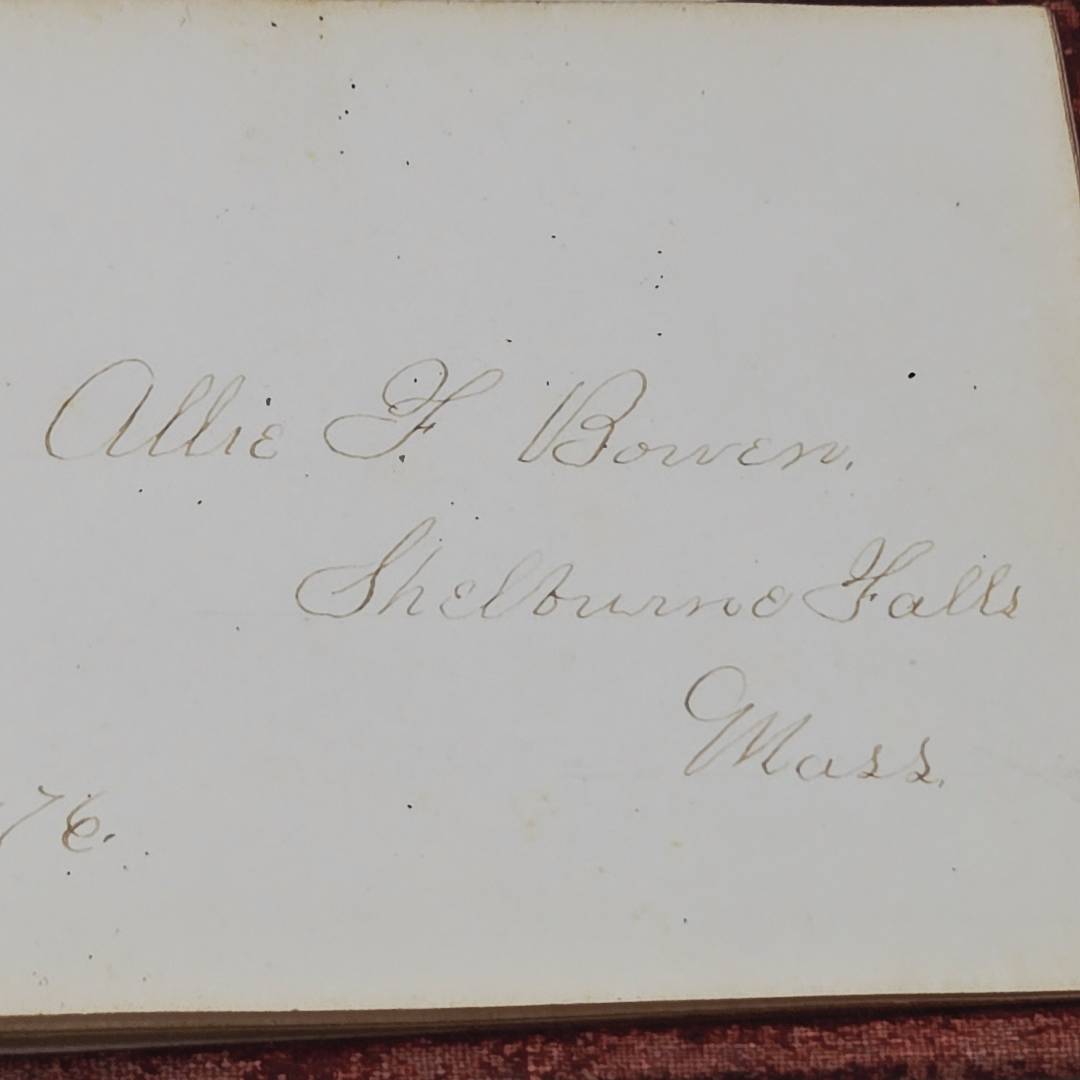 Allie F Bowen.
Shelburne Falls
Mass.
76.